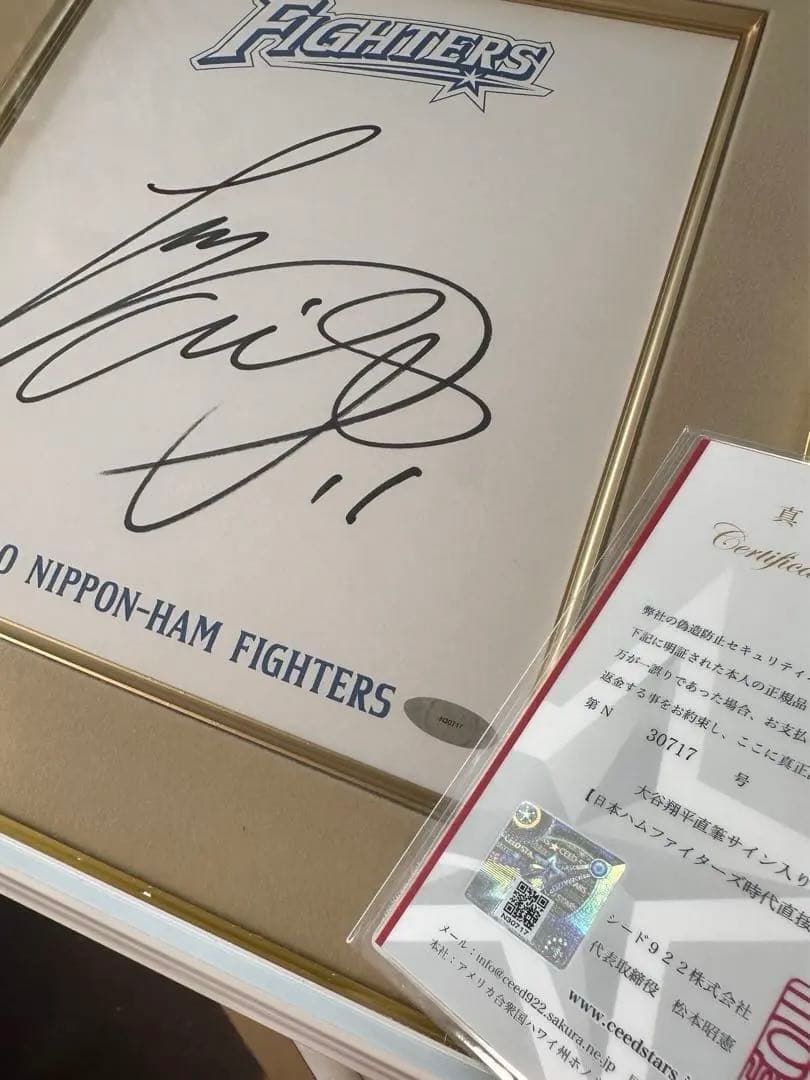 FIGHTERS
11
O NIPPON-HAM FIGHTERS
N30717
真
Certifica
弊社の偽造防止セキュリティ
下記に明証された本人の正規品
万が一誤りであった場合、お支払
返金する事をお約束し、ここに真正
第 N 30717 号
大谷翔平直筆サイン入り
【日本ハムファイターズ時代直接
N30717
シード922株式会社
代表取締役 松本昭憲
www.ceedstars.
メール：info@ceed922.sakura.ne.jp
本社：アメリカ合衆国ハワイ州ホノ